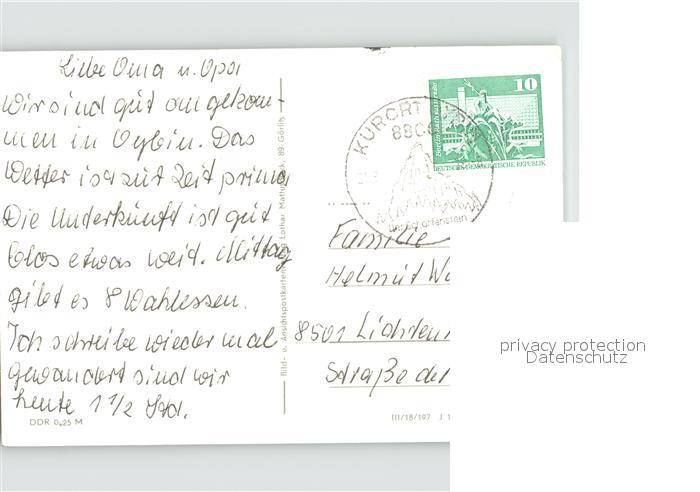 Liebe Oma u. Opa
wir sind gut angekom-
men in Oybin. Das
Wetter ist zut Zeit prima
Die Unterkunft ist gut
blos etwas weit. Mittag
gibt es 8 Wahlessen.
Ich schreibe wieder mal
gewandert sind wir
heute 1 1/2 Std.
DDR 0,25 M
Bild- u. Ansichtskarten Lothar 89 Görlitz
10
DEUTSCHE DEMOKRATISCHE REPUBLIK
KURORT
880
Der Scharfenstein
Familie
Helmut
8501 Lichten
Straße der
III/18/197 J 1
privacy protection
Datenschutz